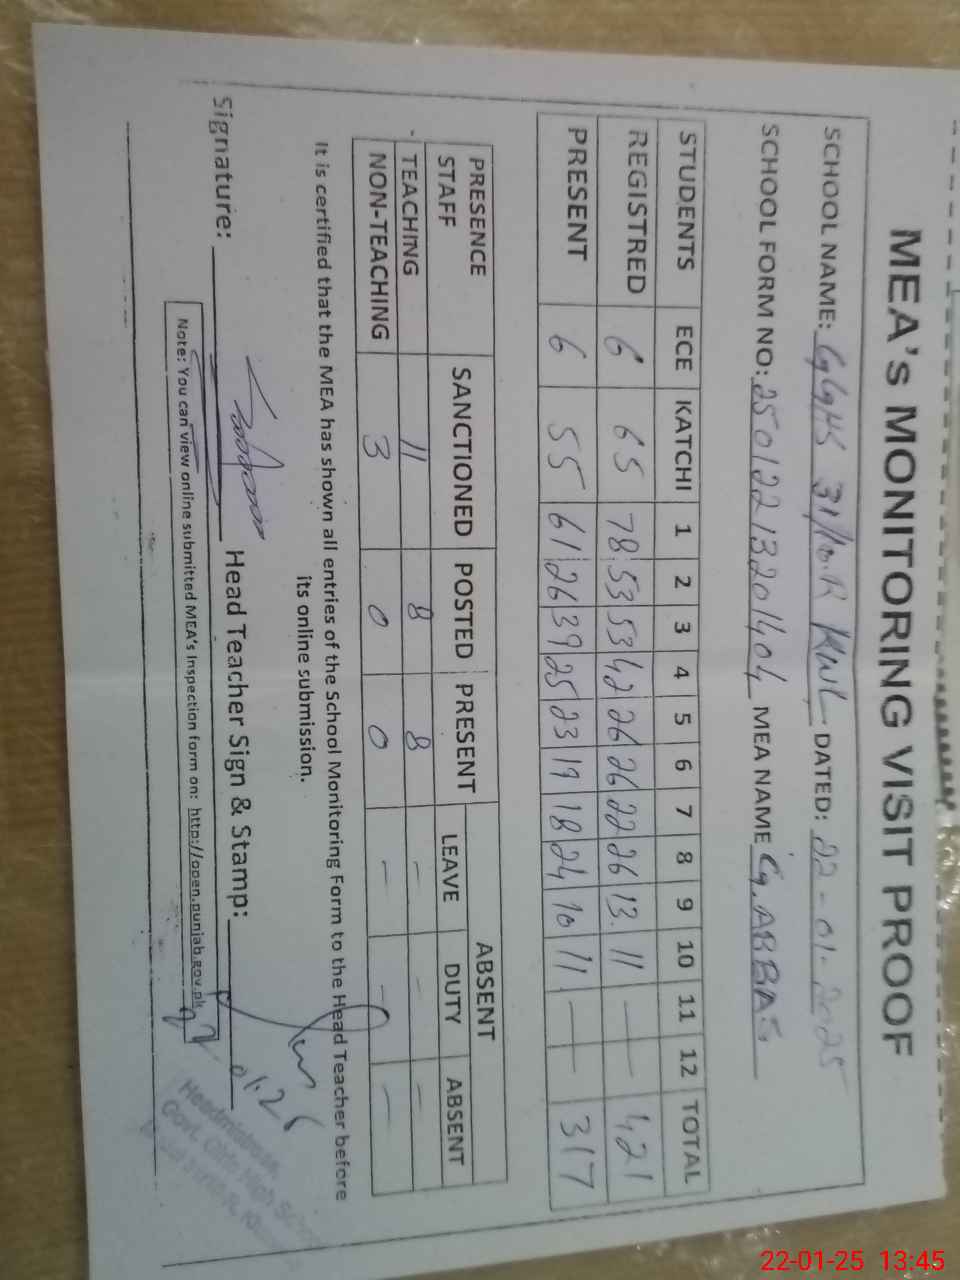 MEA's MONITORING VISIT PROOF
SCHOOL NAME: GGHS 31/10.R KWL DATED: 22-01-2025
SCHOOL FORM NO: 25012213201404 MEA NAME G. ABBAS.
STUDENTS ECE KATCHI 1 2 3 4 5 6 7 8 9 10 11 12 TOTAL
REGISTRED 6 65 78 53 53 42 26 26 22 26 13 11 — — 421
PRESENT 6 55 61 26 39 25 23 19 18 24 10 11 — — 317
PRESENCE STAFF SANCTIONED POSTED PRESENT ABSENT
LEAVE DUTY ABSENT
TEACHING 11 8 8 — — —
NON-TEACHING 3 0 0 — — —
It is certified that the MEA has shown all entries of the School Monitoring Form to the Head Teacher before
its online submission.
Signature: Head Teacher Sign & Stamp:
Headmistress
Govt. Girls High School
Note: You can view online submitted MEA's Inspection form on: http://open.punjab.gov.pk
22-01-25 13:45